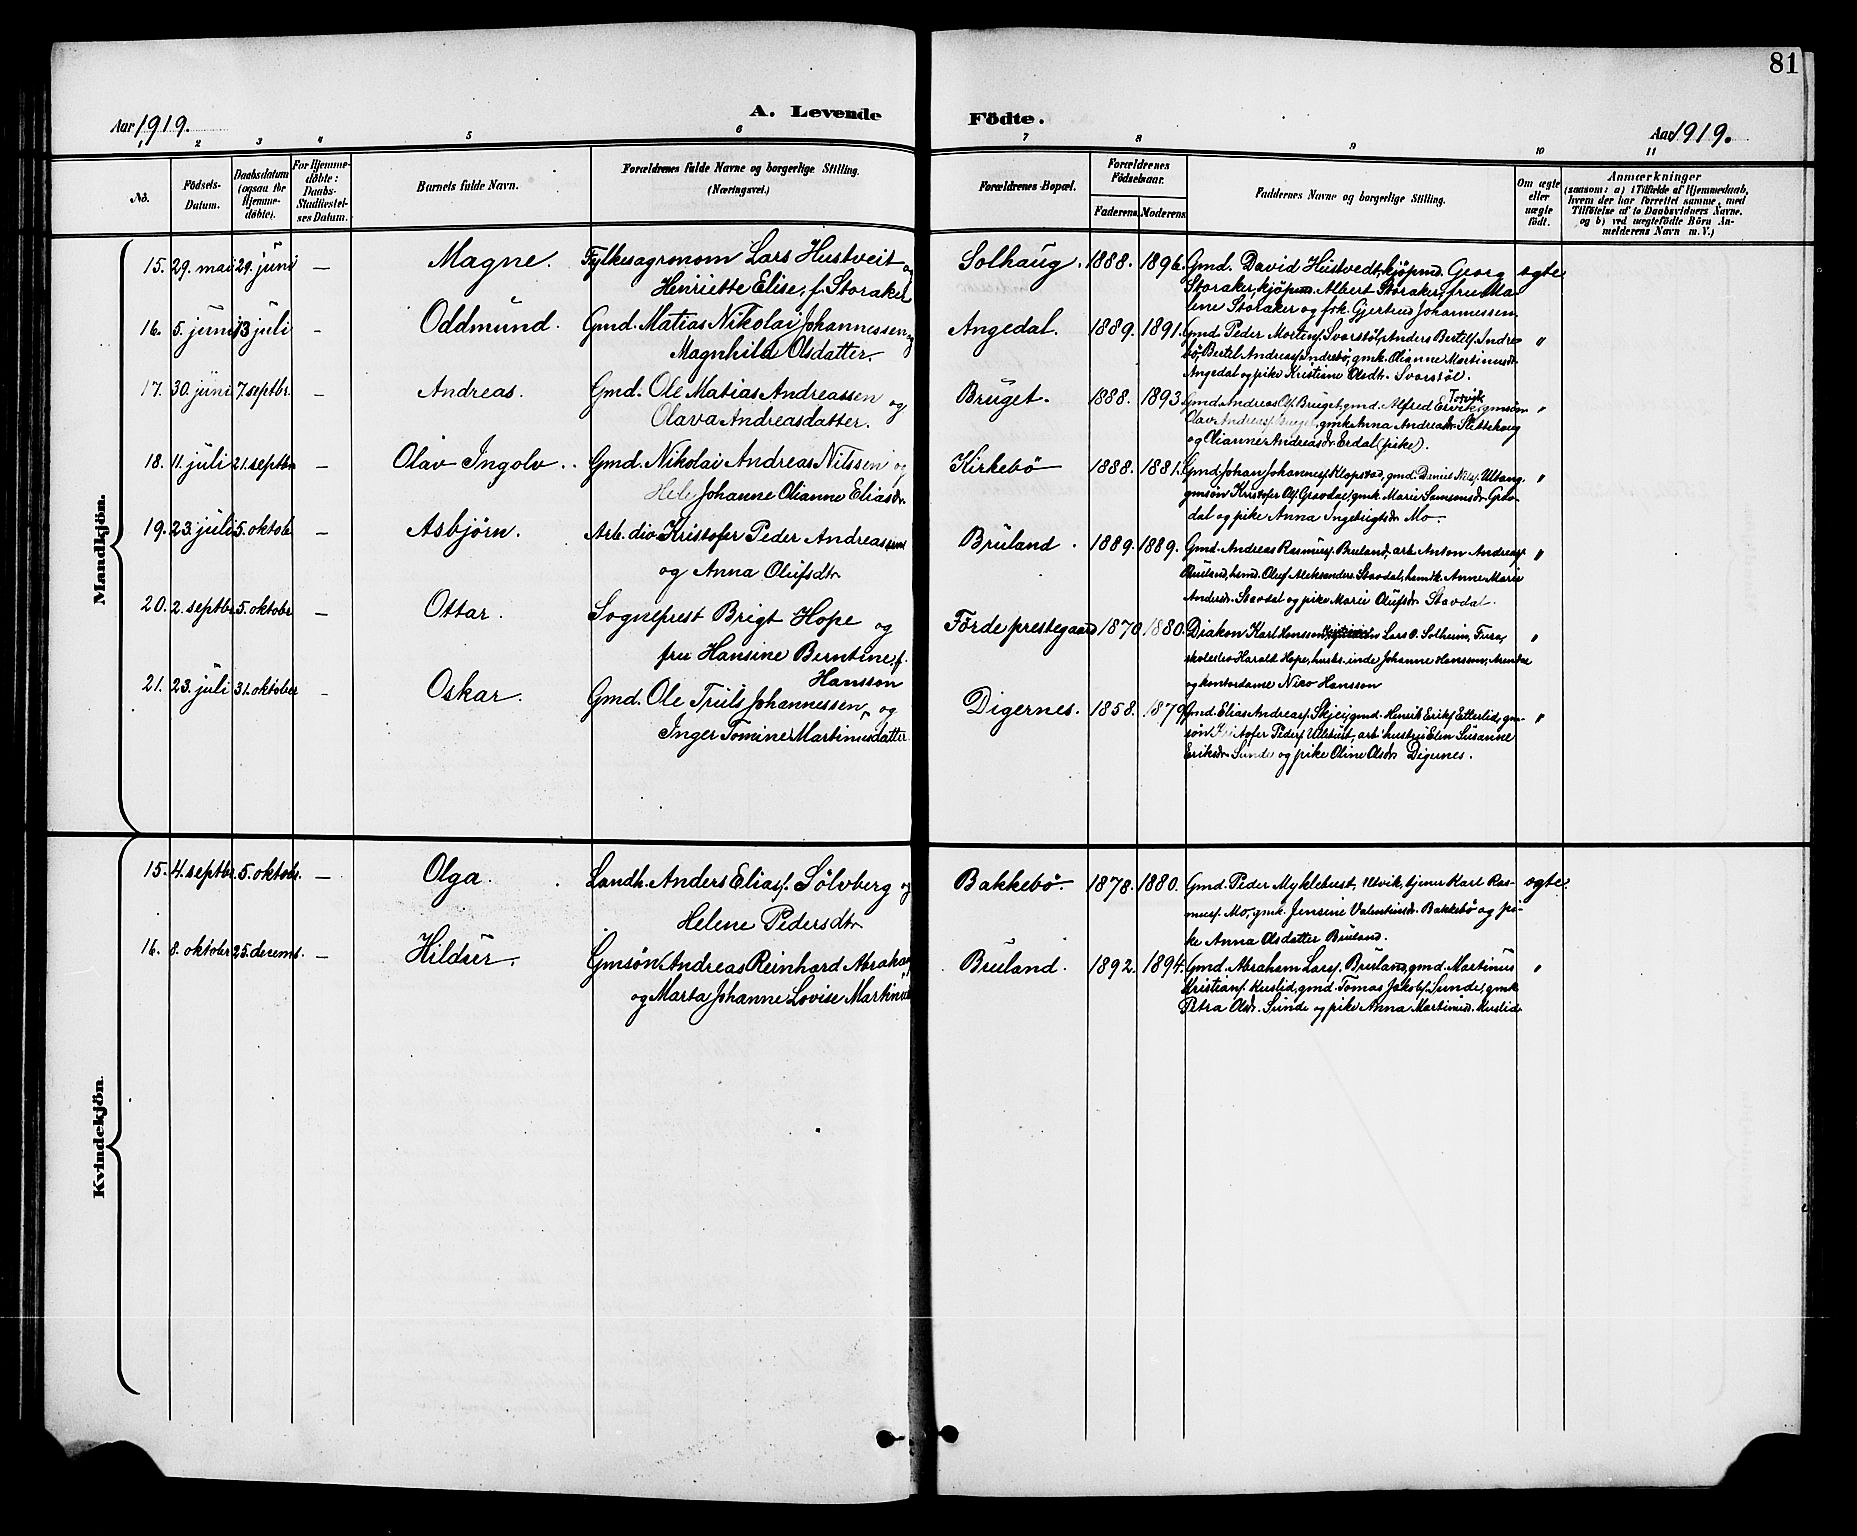 81
Aar 1919.
A. Levende
Födte.
Aar 1919.
1 2 3 4 5 6 7 8 9 10 11
No.
Födsels-
Datum.
Daabsdatum
(ogsaa for
Hjemme-
døbte).
For Hjemme-
døbte:
Daabs-
Stadfæstel-
ses Datum.
Barnets fulde Navn.
Forældrenes fulde Navne og borgerlige Stilling.
(Næringsvei.)
Forældrenes Bopæl.
Forældrenes
Fødselsaar.
Faderens Moderens
Faddernes Navne og borgerlige Stilling.
Om ægte
eller
uægte
født.
Anmærkninger
(saasom: a) i Tilfælde af Hjemmedaab,
hvem der har forrettet samme, med
Tilføielse af to Daabsvidners Navne,
og b) ved uægtefødte Börn An-
melderens Navn m. V.)
Mandkjön.
15. 29. mai 29. juni — Magne. Fylkesagronom Lars Hustveit og
Henriette Elise, f. Storaker
Solhaug. 1888. 1896. Gmd. David Hustvedt, kjöpmd. Georg egte
Storaker, kjöpm. Albert Storaker, fru Ma-
lene Storaker og frk. Gjertrud Johannessen.
16. 5. juni 13 juli – Oddmund. Gmd. Matias Nikolai Johannessen og
Magnhild Olsdatter.
Angedal. 1889. 1891. Gmd. Peder Mortensf. Svorstöl, Anders Bertelf. Andre-
bö, Bertel Andreasf. Indrebö, gmk. Olianne Martinusdr.
Angedal og pike Kristiane Olsdtr. Svorstöl. "
17. 30. juni 7. septbr. – Andreas. Gmd. Ole Matias Andreassen og
Olava Andreasdatter.
Bruget. 1888. 1893. Gmd. Andreas Ol. Bruget, gmd. Alfred Torvik, gmsön "
Olav Andreasf. Bruget, gmk Anna Andreasdr. Slettehaug
og Olianne Andreasdr Erdal (pike).
18. 11. juli 21. septbr – Olav Ingolv. Gmd. Nikolai Andreas Nilssen og
Johanne Olianne Eliasdr.
Kirkebö 1888. 1881. Gmd. Johan Johannesf. Klopstad, gmd. Daniel Nilsf. Ultang "
gmsön Kristofer Olf. Gravdal, gmk. Marie Samsonsdr Grav-
dal og pike Anna Ingebrigtsdr Mo.
19. 23. juli 5. oktob. – Asbjörn. Arb. div Kristofer Peder Andreassen
og Anna Olufsdtr
Bruland. 1889. 1889. Gmd. Andreas Rasmusf. Bruland, arb. Anton Andreasf. "
Bruland, hsmd. Oluf Aleksanders. Stavdal, hsmk. Anne Marie
Andersdr. Stavdal og pike Marie Olufsdr Stavdal.
20. 2. septbr. 5. oktobr – Ottar. Sogneprest Brigt Hope og
fru Hansine Berntine, f.
Hansson
Förde prestegaard 1870. 1880. Diakon Karl Hansson, Lars O. Solheim,
Harald Hope, Johanne Hansson, Arendal "
og kontordame Nico Hansson
21. 23. juli 31. oktober – Oskar. Gmd. Ole Truls Johannessen og
Inger Tomine Martinusdatter
Digernes. 1858. 1879. Gmd. Elias Andreasf. Skjei, gmd. Henrik Eriksf. Etterlid, gm-
sön Kristofer Pedersf. Ullebust, arb. hustru Elen Susanne "
Eriksdr. Sunde og pike Oline Olsdr Digernes.
Kvindekjön.
15. 4. septbr. 5. oktobr. – Olga. Landh. Anders Eliasf. Sölvberg og
Helene Pedersdtr
Bakkebö. 1878. 1880. Gmd. Peder Myklebust, Utvik, tjener Karl Ras- egte.
musf. Mo, gmk. Jensine Valentinsdr. Bakkebö og pi-
ke Anna Olsdatter Bruland.
16. 8. oktobr 25. decemb. – Hildur. Gmsön Andreas Reinhard Abraham
og Marta Johanne Lovise Martinusdr
Bruland. 1892. 1894. Gmd. Abraham Larsf. Bruland, gmd. Martinus "
Kristianf. Kuslid, gmd. Tomas Jakobf. Sunde, gmk.
Petra Olsdr. Sunde og pike Anna Martinusd. Kuslid